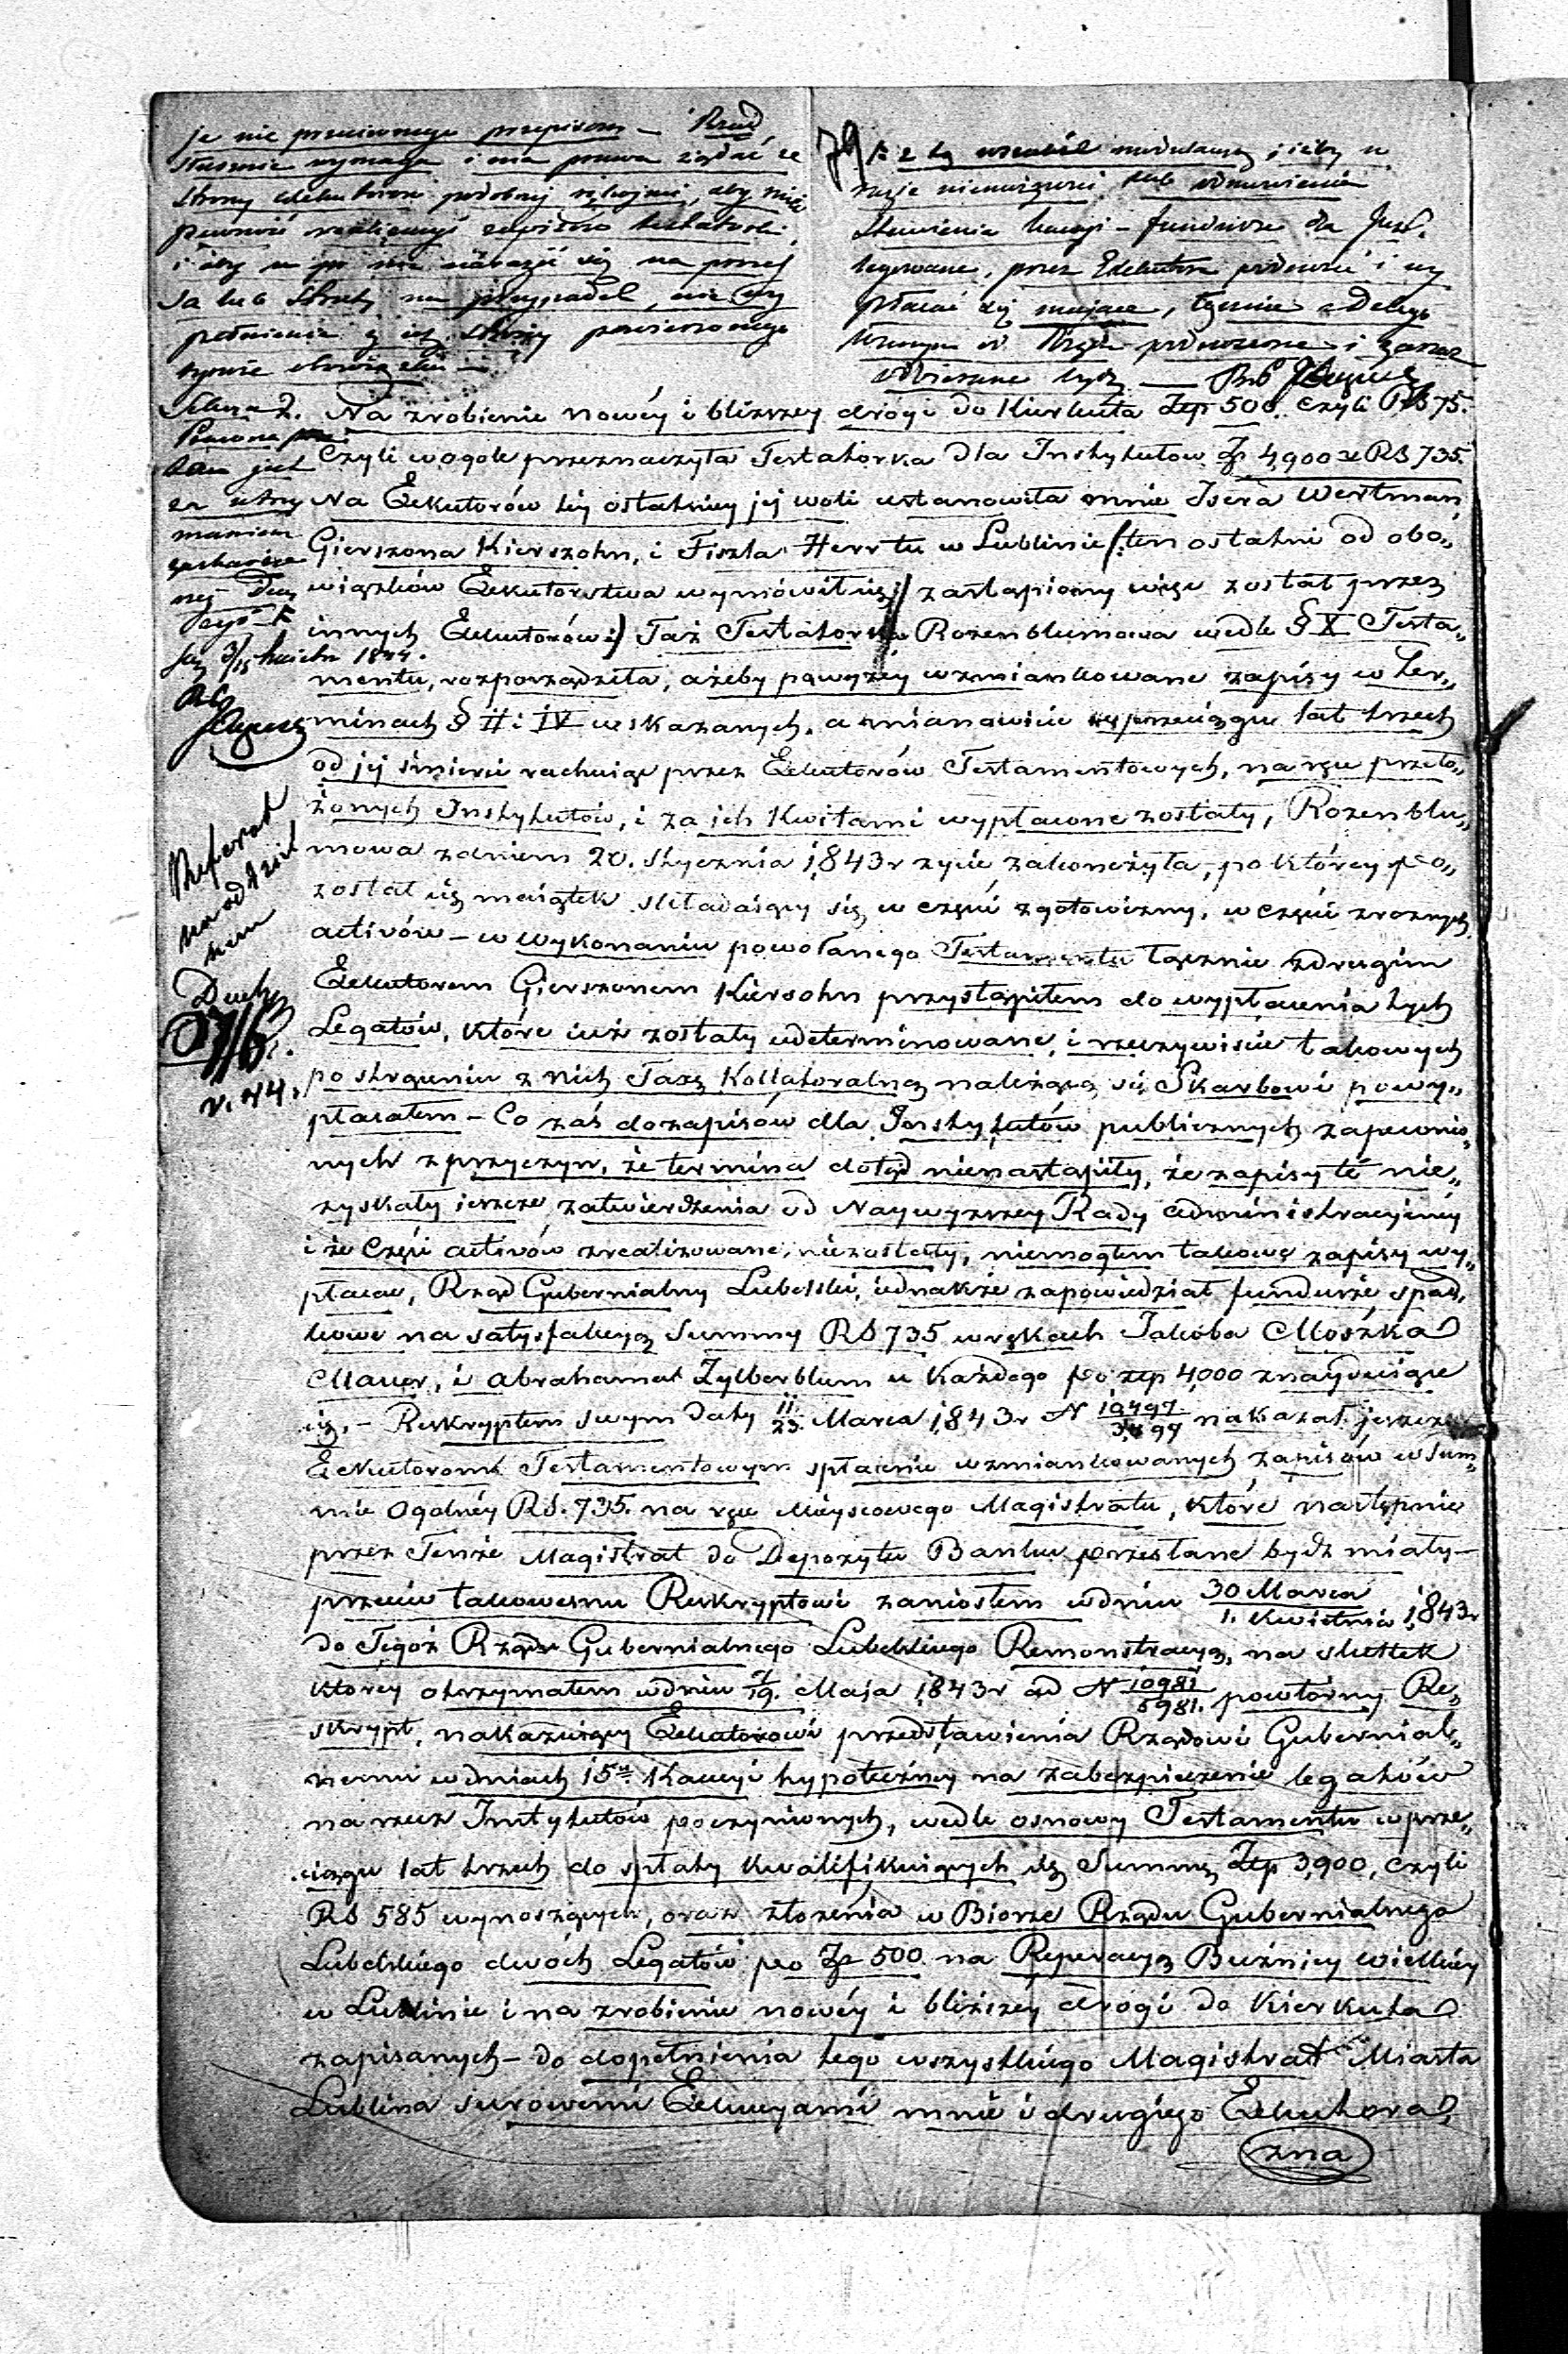 je nie przeciwnego przepisom — Rząd
słusznie wymaga i ma prawo żądać ze
strony podobnej rękojmi, aby mieć
pewność
i aby nie narazić się na
na przypadek, nie wy
pełnienia z ich strony powierzonego
79
Stawienia kaucji — fundusze dla Inst.
legowane, przez Exekutora i wy
płacać się mające, łącznie a Delego
wanym od Rządu i zaraz
RS
Sekcya 2.
3/15 Kwietn 1844.
Referat
na oddziel
nem
Duchny
17/6
r. 44.
Na zrobienie nowéy i bliższey drogi do Kierkuta Złp 500. czyli RS 75.
Czyli wogóle przeznaczyła Testatorka dla Instytutów Zp 4,900 RS 735.
Na Exekutorów téy ostatniey jéj woli ustanowiła mnie Isera Wertman,
Gierszona Kierszohn, i Fiszla Herr tu w Lublinie /: ten ostatni od obo„
wiązków Exekutorstwa wymówił się, zastąpiony więc został przez
innych Exekutorów :/ Taż Testatorka Rozenblumowa wedle § X Testa„
mentu, rozporządziła, ażeby powyżey wzmiankowane zapisy w Ter„
minach § II i IV wskazanych, a mianowicie w przeciągu lat trzech
od jéj śmierci rachuiąc przez Exekutorów Testamentowych, na ręce przeło„
żonych Instytutów, i za ich Kwitami wypłacone zostały, Rozenblu„
mowa z dniem 20. Stycznia 1843 r życie zakończyła, po któréy po„
został się maiątek składaiący się w części z gotowizny, w części z roznych
activów — w wykonaniu powołanego Testamentu łącznie z drugim
Exekutorem Gierszonem Kiersohn przystąpiłem do wypłacenia tych
Legatów, które iuż zostały udeterminowane, i rzeczywiście takowych
po strąceniu z nich Taxy Kollateralney należącey się Skarbowi powy„
płacałem — Co zaś do zapisów dla Instytutów publicznych zapewnio„
nych z przyczyn, że termina dotąd nienastąpiły, że zapisy te nie„
zyskały ieszcze zatwierdzenia od Naywyższey Rady Administracyiney
i że części activów zrealizowane niezostały, niemogłem takowe zapisy wy„
płacać, Rząd Gubernialny Lubelski, iednakże zapowiedział fundusze spad„
kowe na satysfakcyą Summy RS 735 w rękach Jakóba Moszka
Mauer, i Abrahama Zylberblum u każdego po złp 4,000 znayduiące
się, — Reskryptem swym daty 11/23. Marca 1843 r N 10497/3,499 nakazał jeszcze
Exekutorom Testamentowym spłacenie wzmiankowanych zapisów w Sum„
mie Ogólnéy RS. 735. na ręce Mieyscowego Magistratu, które następnie
przez Tenże Magistrat do Depozytu Banku przesłane bydź miały —
przeciw takowemu Reskryptowi zaniosłem w dniu 30 Marca/1. Kwietnia 1843 r
do Tegoż Rządu Gubernialnego Lubelskiego Remonstracyą, na skutek
któréy otrzymałem w dniu 7/19. Maja 1843 r ad N 10981/5981. powtórny Re„
skrypt, nakazuiący Exekutorowi przedstawienia Rządowi Gubernial„
nemu w dniach 15u Kaucyi hypoteczney na zabezpieczenie legatów
na rzecz Instytutów poczynionych, wedle osnowy Testamentu w prze„
ciągu lat trzech do spłaty kwalifikuiących się Summę Złp 3,900, czyli
RS 585 wynoszących, oraz złożenia w Biorze Rządu Gubernialnego
Lubelskiego dwóch Legatów po Zp 500 na Reperacyą Buźnicy wielkiéy
w Lublinie i na zrobienie nowéy i bliższey drogi do Kierkuta
zapisanych — do dopełnienia tego wszystkiego Magistrat Miasta
Lublina surowemi Exekucyami mnie i drugiego Exekutora,
zna